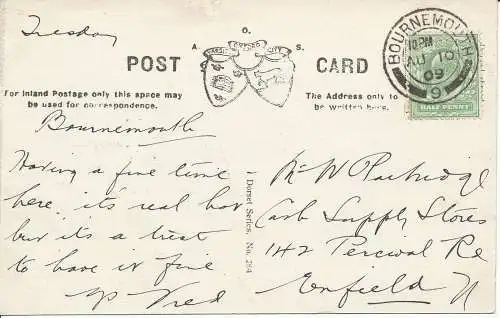 Tuesday
A. O. S.
POST CARD
For Inland Postage only this space may
be used for correspondence.
The Address only to
be written here.
BOURNEMOUTH
10 PM
AU 10
09
9
HALF PENNY
Bournemouth
Having a fine time
here, it's real hot
but it's a treat
to have it fine
Fred
Dorset Series, No. 284
Mr W Partridge
Cash Supply Stores
142 Percival Rd
Enfield
N